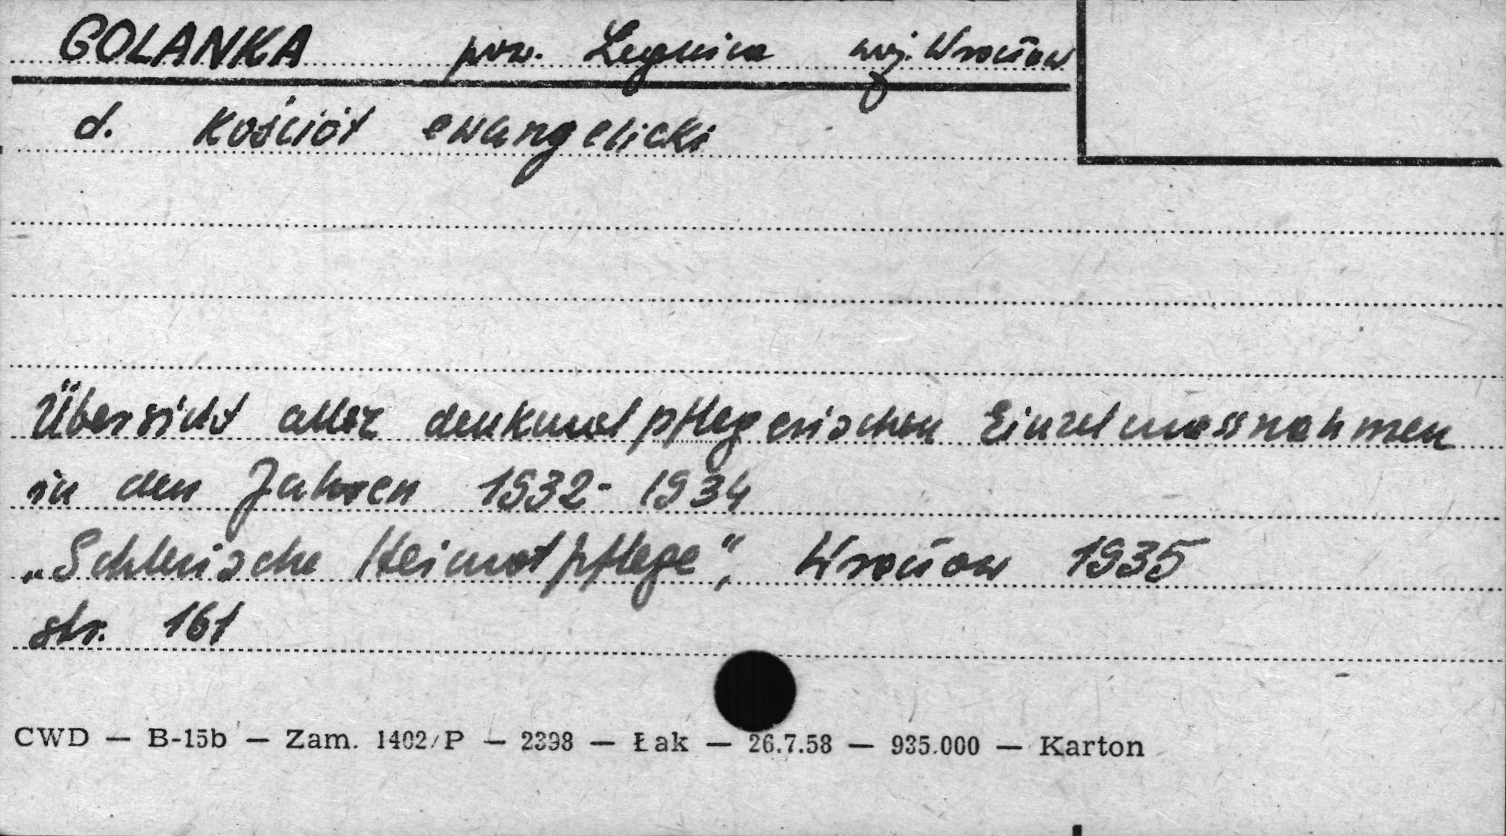 GOLANKA pow. Legnica woj. Wrocław
d. Kościół ewangelicki
Übersicht aller denkmalpflegerischen Einzelmassnahmen
in den Jahren 1932-1934
„Schlesische Heimatpflege“, Wrocław 1935
str. 161
CWD — B-15b — Zam. 1402/P — 2398 — Łak — 26.7.58 — 935.000 — Karton